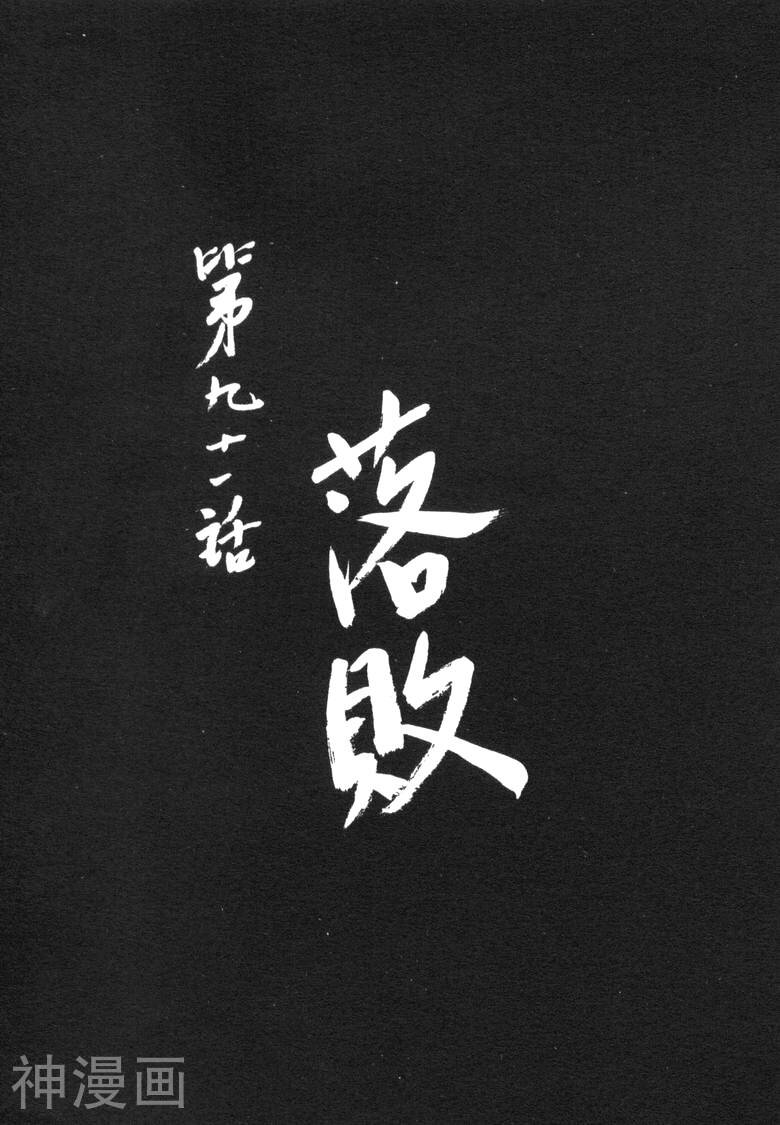 第九十一话
落敗
神漫画